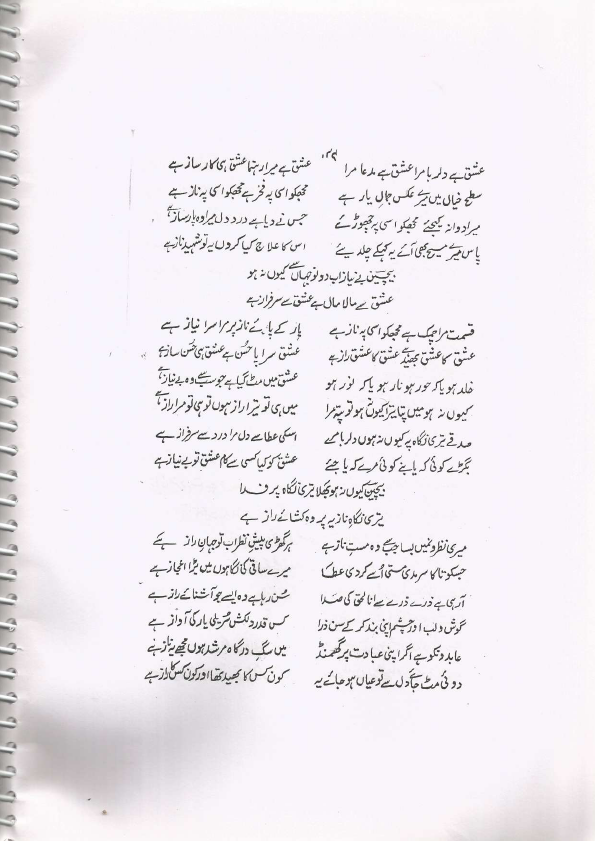 ۳۲
عشق ہے دلربا مرا عشق ہے مدعا مرا عشق ہے میرا رہنما عشق ہی کارساز ہے
سطح خیال میں میرے عکس جمال یار ہے مجھکو اسی پہ فخر ہے مجھکو اسی پہ ناز ہے
میرا دوا نہ کیجئے مجھکو اسی پر چھوڑئے جس نے دیا ہے درد دل میرا وہ چارساز ہے
پاس میرے مسیح بھی آئے یہ کہکے چلدیئے اس کا علاج کیا کروں یہ تو شہید ناز ہے
بیچین بے نیاز اب دونوجہاں سے کیوں نہ ہو
عشق سے مالا مال ہے عشق سے سرفراز ہے
قسمت مرا چمک ہے مجھکو اسی پہ ناز ہے یار کے پائے ناز پر مرا سرا نیاز ہے
عشق کا عشق بھید ہے عشق کا عشق راز ہے عشق سراپا حسن ہے عشق ہی حسن ساز ہے
خلد ہو یا کہ حور ہو نار ہو یا کہ نور ہو عشق میں مٹ گیا ہے جو سب سے وہ بے نیاز ہے
کیوں نہ ہو میں پتا ترا کیوں نہ ہو تو پتہ مرا میں ہی تو تیرا راز ہوں تو ہی تو مرا راز ہے
صدقے تری نگاہ پہ کیوں نہ ہوں دلربا مے اسکی عطا سے دل مرا درد سے سرفراز ہے
بگڑے کوئی کہ یا بنے کوئی مرے کہ یا جئے عشق کو کیا کسی سے کام عشق تو بے نیاز ہے
بیچین کیوں نہ ہو بھلا تیری نگاہ پر فدا
تیری نگاہ ناز یہ پردہ کشائے راز ہے
میری نظرونمیں بسا جب سے وہ مست ناز ہے ہر گھڑی پیش نظر اب تو جہان راز ہے
جسکو تاکا سرمدی مستی اُسے کردی عطا میرے ساقی کی نگاہوں میں بڑا اعجاز ہے
آرہی ہے ذرے ذرے سے انا الحق کی صدا سُن رہا ہے وہ اسے جو آشنائے راز ہے
گوش و لب اور چشم اپنی بند کر کے سن ذرا کس قدر دلکش سُریلی یار کی آواز ہے
عابدونکو ہے اگر اپنی عبادت پر گھمنڈ میں سگ درگاہ مرشد ہوں مجھے یہ ناز ہے
دوئی مٹ جائے دل سے تو عیاں ہو جائے یہ کون کس کا بھیدی تھا اور کون کس کا راز ہے